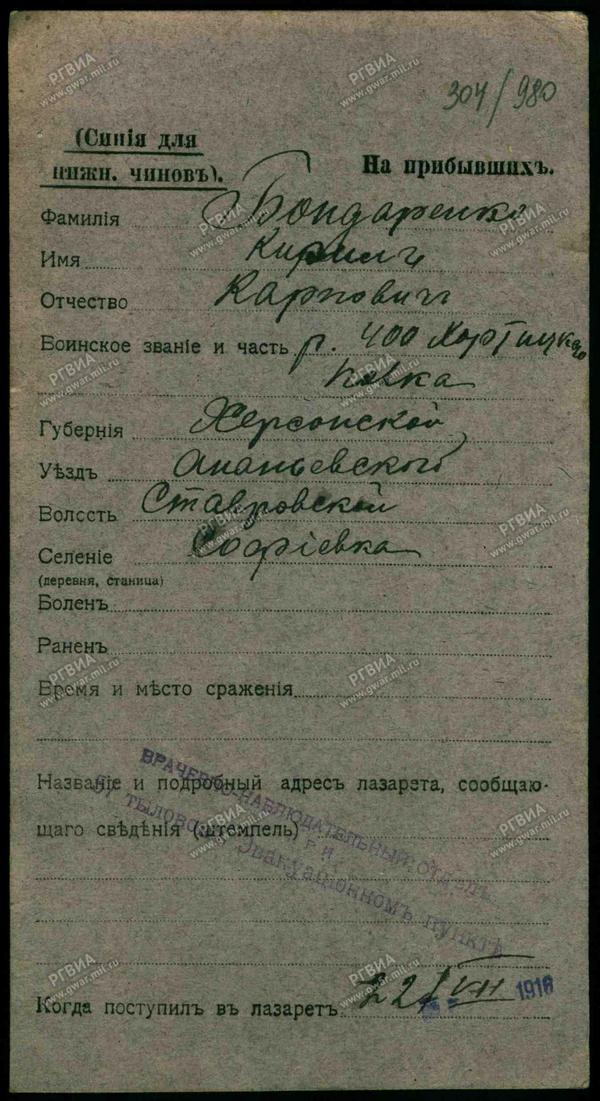 304/980
(Синія для
нижн. чиновъ).
На прибывшихъ.
Фамилія Бондаренко
Имя Кирилъ
Отчество Карповичъ
Воинское званіе и часть р. 400 Хортицкаго
полка
Губернія Херсонской
Уѣздъ Ананьевскаго
Волость Ставровской
Селеніе Софіевка
(деревня, станица)
Боленъ
Раненъ
Время и мѣсто сраженія
Названіе и подробный адресъ лазарета, сообщаю-
щаго свѣдѣнія (штемпель)
ВРАЧЕБНО-НАБЛЮДАТЕЛЬНЫЙ ОТДѢЛЪ
тыловомъ Эвакуаціонномъ пунктѣ
Когда поступилъ въ лазаретъ 22/VII 1916
РГВИА
www.gwar.mil.ru